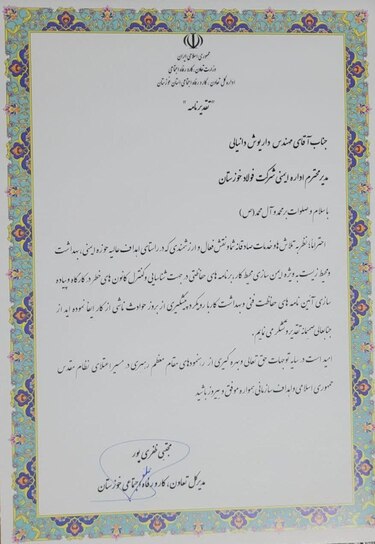 جمهوری اسلامی ایران
وزارت تعاون، کار و رفاه اجتماعی
اداره کل تعاون، کار و رفاه اجتماعی استان خوزستان
"تقدیرنامه"
جناب آقای مهندس داریوش دانیالی
مدیر محترم اداره ایمنی شرکت فولاد خوزستان
با سلام و صلوات بر محمد و آل محمد (ص)
احتراماً، نظر به تلاش ها و خدمات صادقانه شما و نقش فعال و ارزشمندی که در راستای اهداف عالیه حوزه ایمنی، بهداشت
و محیط زیست به ویژه ایمن سازی محیط کار، برنامه های حفاظتی در جهت شناسایی و کنترل کانون های خطر در کارگاه و پیاده
سازی آئین نامه های حفاظت فنی و بهداشت کار با رویکرد پیشگیری از بروز حوادث ناشی از کار ایفا نموده اید از
جنابعالی صمیمانه تقدیر و تشکر می نمایم.
امید است در سایه توجهات حق تعالی و بهره گیری از رهنمودهای مقام معظم رهبری در مسیر اعتلای نظام مقدس
جمهوری اسلامی و اهداف سازمانی همواره موفق و پیروز باشید
مجتبی ظفری پور
مدیرکل تعاون، کار و رفاه اجتماعی خوزستان